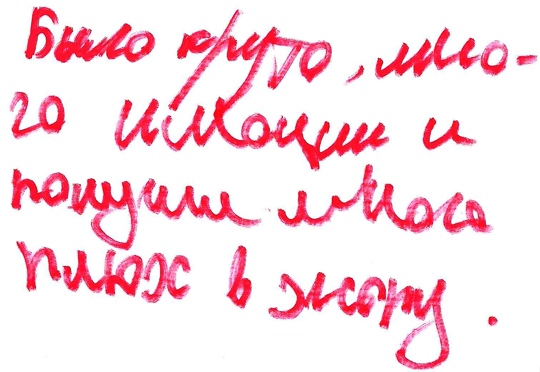 Было круто, мно-
го имоции и
получили много
плюх в жопу.